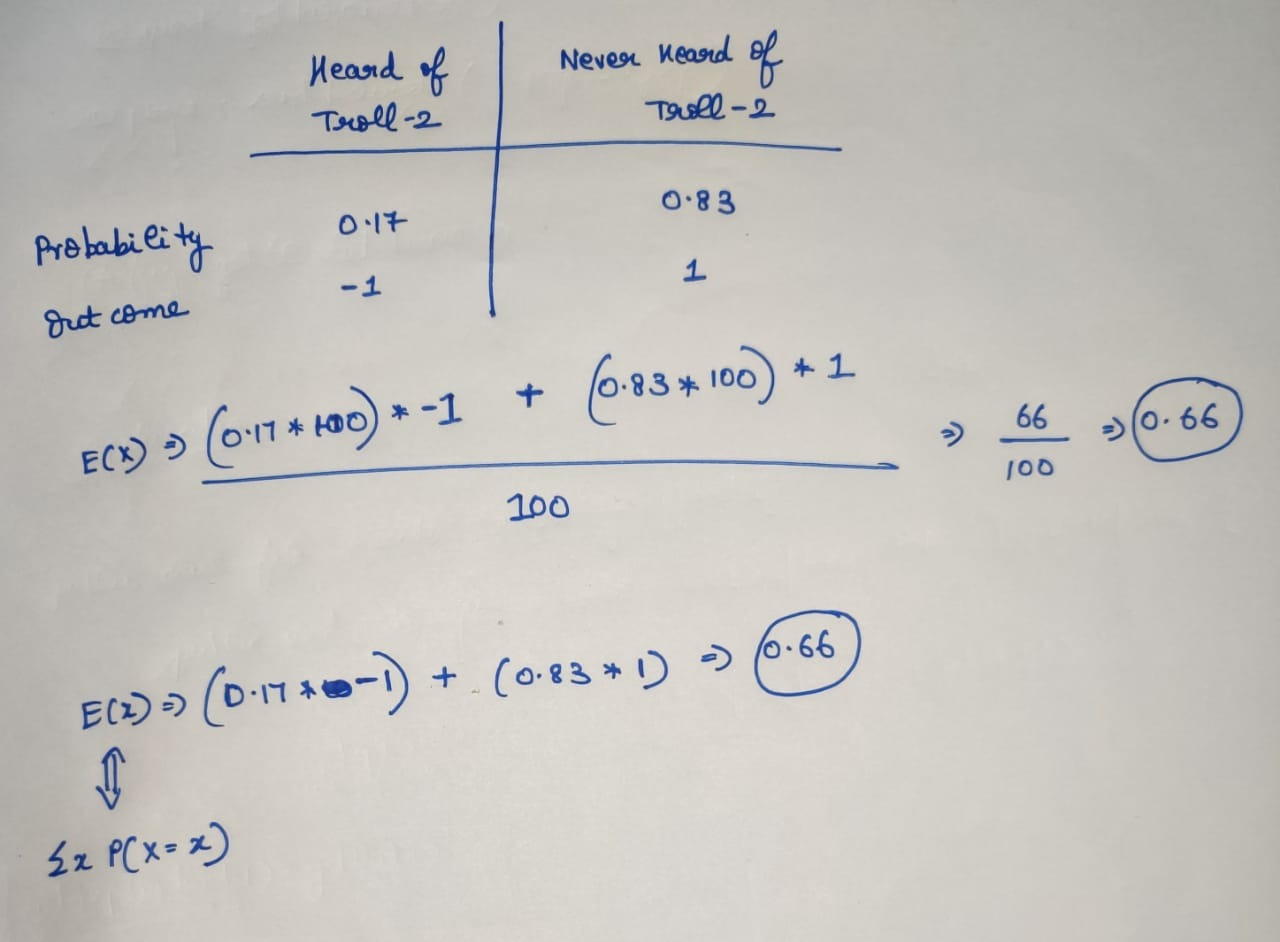 Heard of Never Heard of
Troll-2 Troll-2
Probability 0.17 0.83
Outcome -1 1
E(X) ⇒ (0.17 * 100) * -1 + (0.83 * 100) * 1 ⇒ 66 ⇒ 0.66
100 100
E(x) ⇒ (0.17 * -1) + (0.83 * 1) ⇒ 0.66
⇕
Σx P(X=x)